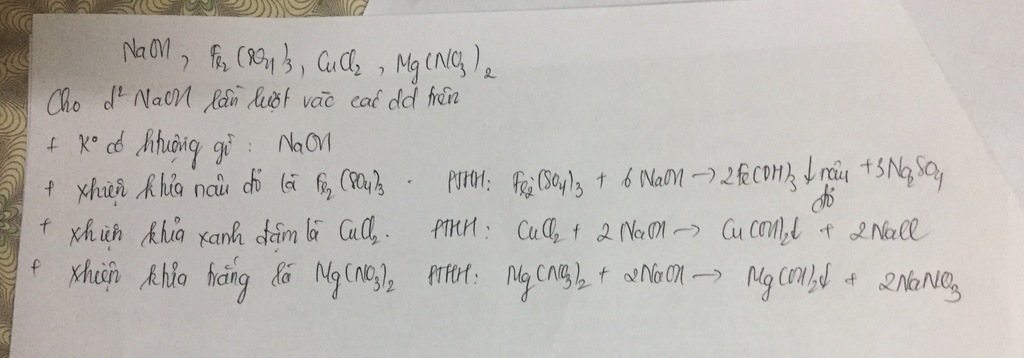 NaOH, Fe₂(SO₄)₃, CuCl₂, Mg(NO₃)₂
Cho d² NaOH lần lượt vào các dd trên
+ K° có htượng gì : NaOH
+ xhiện khỉa nâu đỏ là Fe₂(SO₄)₃ . PTHH: Fe₂(SO₄)₃ + 6 NaOH → 2Fe(OH)₃ ↓ nâu đỏ + 3Na₂SO₄
+ xhiện khỉa xanh đậm là CuCl₂. PTHH : CuCl₂ + 2 NaOH → Cu(OH)₂↓ + 2NaCl
+ xhiện khỉa trắng là Mg(NO₃)₂ PTHH: Mg(NO₃)₂ + 2NaOH → Mg(OH)₂↓ + 2NaNO₃